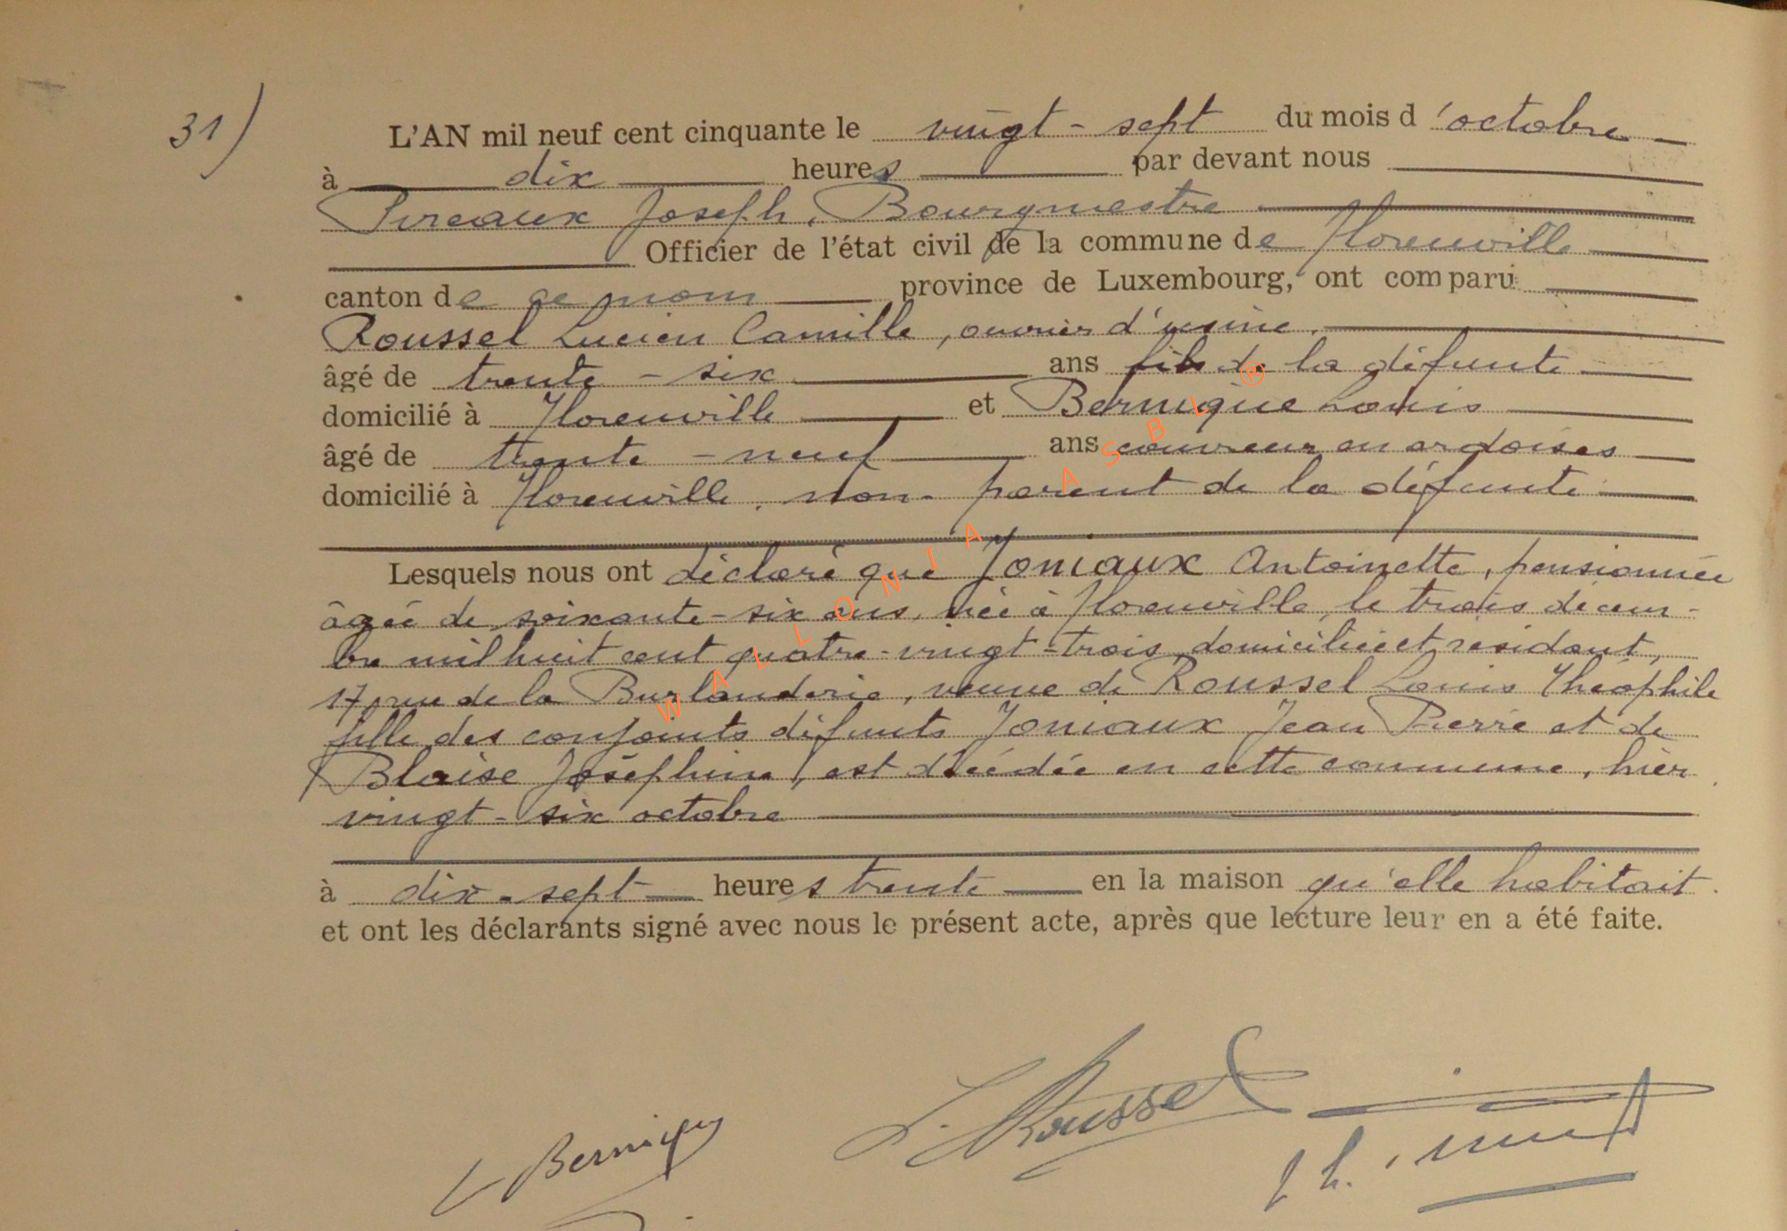 31)
L'AN mil neuf cent cinquante le vingt-sept du mois d'octobre
à dix heures par devant nous
Pireaux Joseph, Bourgmestre
Officier de l'état civil de la commune de Florenville
canton de ce nom province de Luxembourg, ont comparu
Roussel Lucien Camille, ouvrier d'usine,
âgé de trente-six ans fils de la défunte
domicilié à Florenville et Bernique Louis
âgé de trente-neuf ans couvreur en ardoises
domicilié à Florenville, non-parent de la défunte
Lesquels nous ont déclaré que Joniaux Antoinette, pensionnée
âgée de soixante-six ans, née à Florenville, le trois décem-
bre mil huit cent quatre-vingt-trois, domiciliée et résidant,
17, rue de la Burlanderie, veuve de Roussel Louis Théophile
fille des conjoints défunts Joniaux Jean Pierre et de
Blaise Joséphine, est décédée en cette commune, hier
vingt-six octobre
à dix-sept heures trente en la maison qu'elle habitait.
et ont les déclarants signé avec nous le présent acte, après que lecture leur en a été faite.
WALLONIA ASBL ®
L. Roussel
L Bernique